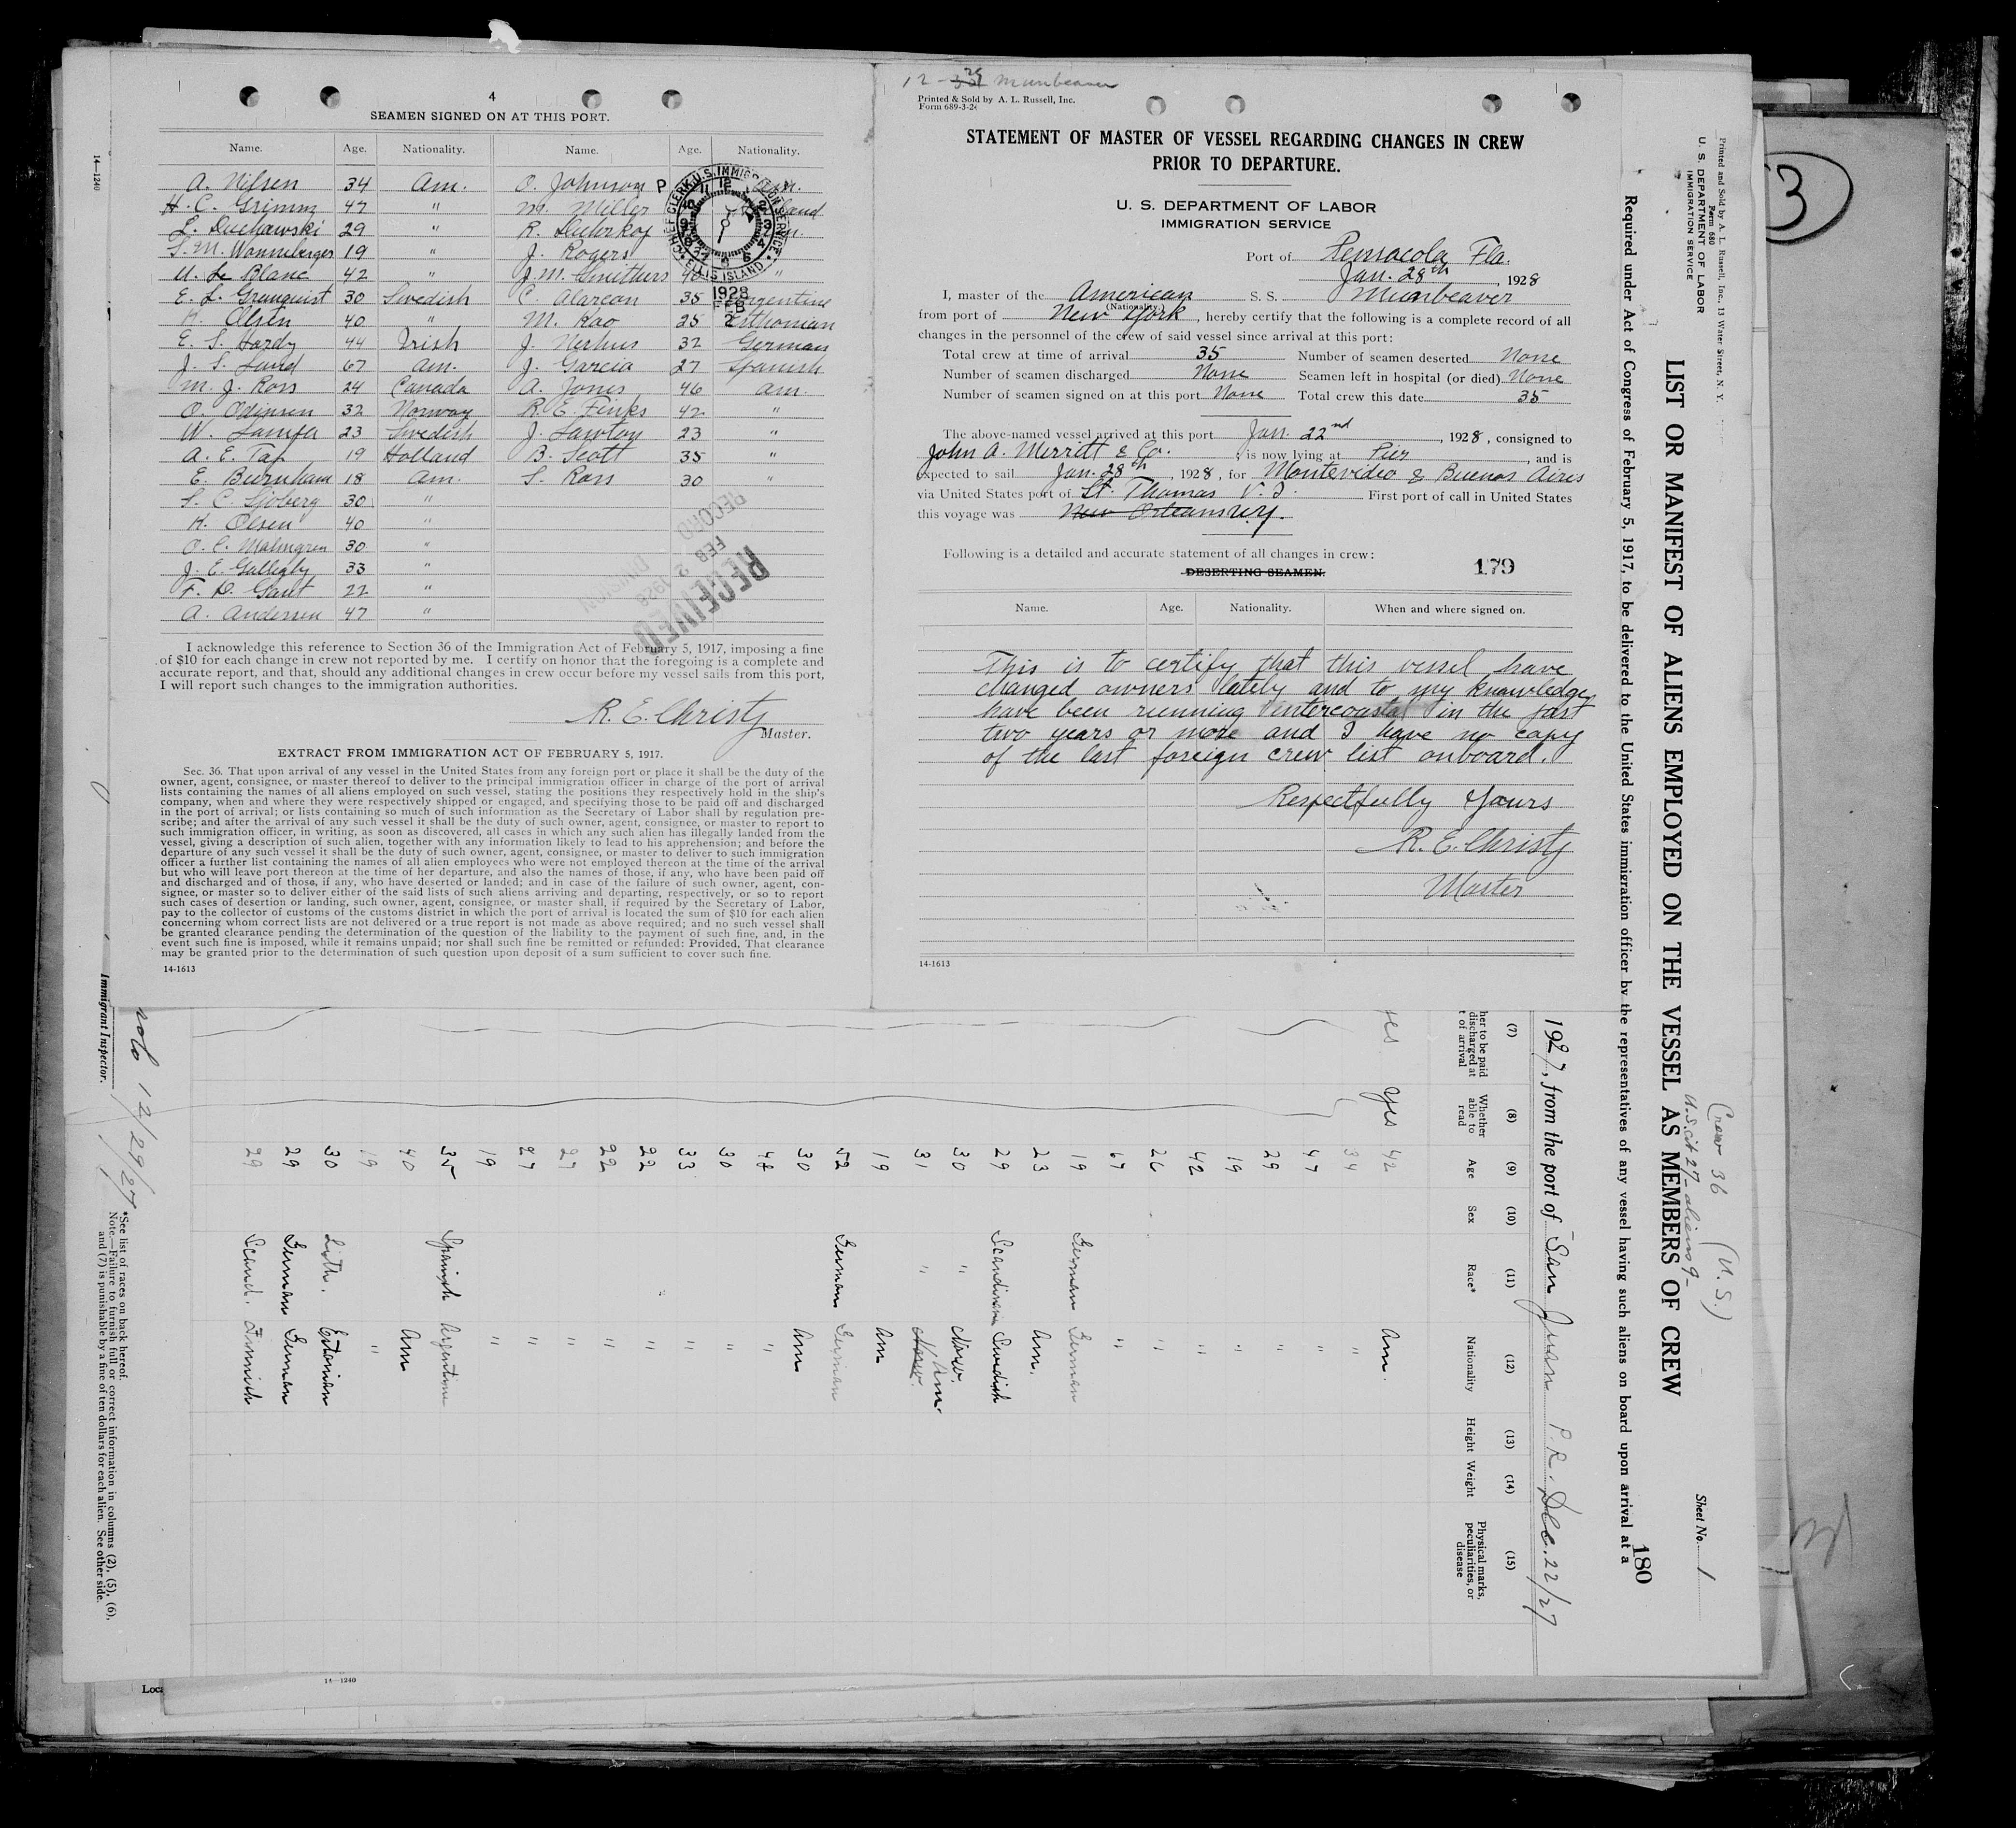 4
SEAMEN SIGNED ON AT THIS PORT.
Name. Age. Nationality. Name. Age. Nationality.
A. Nilsen 34 Am. O. Johnson
H. C. Grimm 47 " M. Miller
29 " R.
19 " J. Rogers
U. Le Blanc 42 " J. M. Smithers 40 "
E. L. Granquist 30 Swedish C. Alarcon 35 Argentine
H. Olsen 40 " M. Kao 25 Esthonian
E. S. Hardy 44 Irish J. Nerhus 32 German
J. S. 67 Am. J. Garcia 27 Spanish
M. J. Ross 24 Canada A. Jones 46 Am.
O. Odinsen 32 Norway R. E. Finks 42 "
W. 23 Swedish J. Lawton 23 "
A. E. Tap 19 Holland B. Scott 35 "
E. Burnham 18 Am. S. Ross 30 "
S. C. Sjoberg 30 "
H. Olsen 40 "
O. C. Malmgren 30 "
J. E. 33 "
F. D. Gant 22 "
A. Andersen 47 "
CHIEF CLERK U.S. IMMIGRATION SERVICE
ELLIS ISLAND
1928
FEB
2
RECEIVED
FEB 2 1928
RECORD DIVISION
I acknowledge this reference to Section 36 of the Immigration Act of February 5, 1917, imposing a fine
of $10 for each change in crew not reported by me. I certify on honor that the foregoing is a complete and
accurate report, and that, should any additional changes in crew occur before my vessel sails from this port,
I will report such changes to the immigration authorities.
R. E. Christy
Master.
EXTRACT FROM IMMIGRATION ACT OF FEBRUARY 5, 1917.
Sec. 36. That upon arrival of any vessel in the United States from any foreign port or place it shall be the duty of the
owner, agent, consignee, or master thereof to deliver to the principal immigration officer in charge of the port of arrival
lists containing the names of all aliens employed on such vessel, stating the positions they respectively hold in the ship's
company, when and where they were respectively shipped or engaged, and specifying those to be paid off and discharged
in the port of arrival; or lists containing so much of such information as the Secretary of Labor shall by regulation pre-
scribe; and after the arrival of any such vessel it shall be the duty of such owner, agent, consignee, or master to report to
such immigration officer, in writing, as soon as discovered, all cases in which any such alien has illegally landed from the
vessel, giving a description of such alien, together with any information likely to lead to his apprehension; and before the
departure of any such vessel it shall be the duty of such owner, agent, consignee, or master to deliver to such immigration
officer a further list containing the names of all alien employees who were not employed thereon at the time of the arrival
but who will leave port thereon at the time of her departure, and also the names of those, if any, who have been paid off
and discharged and of those, if any, who have deserted or landed; and in case of the failure of such owner, agent, con-
signee, or master so to deliver either of the said lists of such aliens arriving and departing, respectively, or so to report
such cases of desertion or landing, such owner, agent, consignee, or master shall, if required by the Secretary of Labor,
pay to the collector of customs of the customs district in which the port of arrival is located the sum of $10 for each alien
concerning whom correct lists are not delivered or a true report is not made as above required; and no such vessel shall
be granted clearance pending the determination of the question of the liability to the payment of such fine, and, in the
event such fine is imposed, while it remains unpaid; nor shall such fine be remitted or refunded: Provided, That clearance
may be granted prior to the determination of such question upon deposit of a sum sufficient to cover such fine.
14-1613
12-29 Munbeaver
Printed & Sold by A. L. Russell, Inc.
Form 689-3-26
STATEMENT OF MASTER OF VESSEL REGARDING CHANGES IN CREW
PRIOR TO DEPARTURE.
U. S. DEPARTMENT OF LABOR
IMMIGRATION SERVICE
Port of Pensacola Fla.
Jan. 28th, 1928
I, master of the American S. S. Munbeaver
(Nationality)
from port of New York, hereby certify that the following is a complete record of all
changes in the personnel of the crew of said vessel since arrival at this port:
Total crew at time of arrival 35 Number of seamen deserted None
Number of seamen discharged None Seamen left in hospital (or died) None
Number of seamen signed on at this port None Total crew this date 35
The above-named vessel arrived at this port Jan. 22nd, 1928, consigned to
John A. Merritt & Co. is now lying at Pier, and is
expected to sail Jan. 28th, 1928, for Montevideo & Buenos Aires
via United States port of St. Thomas V. I. First port of call in United States
this voyage was New Orleans N.Y.
Following is a detailed and accurate statement of all changes in crew:
DESERTING SEAMEN.
179
Name. Age. Nationality. When and where signed on.
This is to certify that this vessel have
changed owners lately and to my knowledge
have been running intercoastal in the past
two years or more and I have no copy
of the last foreign crew list onboard.
Respectfully Yours
R. E. Christy
Master
14-1613
Printed and Sold by A. L. Russell, Inc., 13 Water Street, N. Y.
Form 680
U. S. DEPARTMENT OF LABOR
IMMIGRATION SERVICE
Crew 36 (U. S.)
U.S. cit 27 - aliens 9-
Sheet No. 1
LIST OR MANIFEST OF ALIENS EMPLOYED ON THE VESSEL AS MEMBERS OF CREW
180
Required under Act of Congress of February 5, 1917, to be delivered to the United States immigration officer by the representatives of any vessel having such aliens on board upon arrival at a
1927, from the port of San Juan P. R. Dec. 22/27
(7) (8) (9) (10) (11) (12) (13) (14) (15)
her to be paid
discharged at
t of arrival
Whether
able to
read
Age
Sex
Race*
Nationality
Height
Weight
Physical marks,
peculiarities, or
disease
yes yes 42 Am.
34 "
47 "
29 "
19 "
42 "
26 "
67 "
19 German German
23 Am.
29 Scandinavn Swedish
30 " Norw.
31 " Norw. Am.
19 Am
52 German German
30 Am
48 "
30 "
33 "
22 "
22 "
27 "
27 "
19 "
35 Spanish Argentine
40 Am
19 "
30 Lith. Estonian
29 German German
29 Scand. Finnish
12/29/27
Immigrant Inspector.
*See list of races on back hereof.
Note.—Failure to furnish full or correct information in columns (2), (5), (6),
and (7) is punishable by a fine of ten dollars for each alien. See other side.
14—1240
14—1240
Loc
3